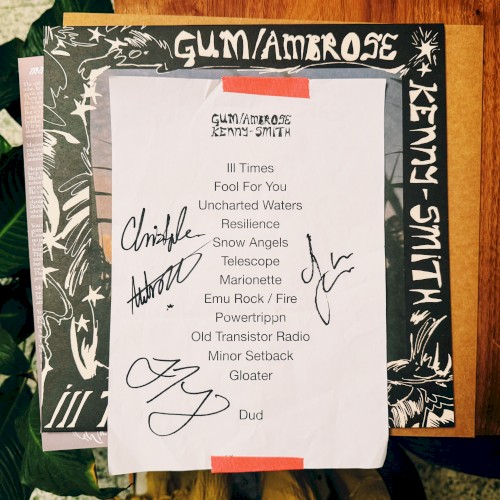 GUM/AMBROSE
KENNY-SMITH
GUM/AMBROSE
KENNY-SMITH
Ill Times
Fool For You
Uncharted Waters
Resilience
Snow Angels
Telescope
Marionette
Emu Rock / Fire
Powertrippn
Old Transistor Radio
Minor Setback
Gloater
Dud
ill